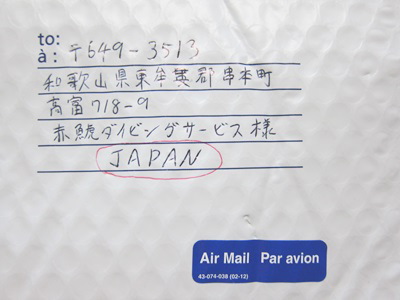 to:
à: 〒649-3513
和歌山県東牟婁郡串本町
高富718-9
赤鯱ダイビングサービス様
JAPAN
Air Mail Par avion
43-074-038 (02-12)